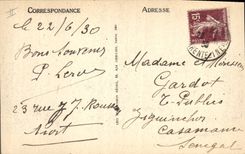 CORRESPONDANCE
Le 22/6/30
Bons Souvenirs
P. Leroy
23 rue J. J. Rousseau
Niort
ADRESSE
Madame et Monsieur
Gardot
T. Publics
Ziguinchor
Casamance
Sénégal